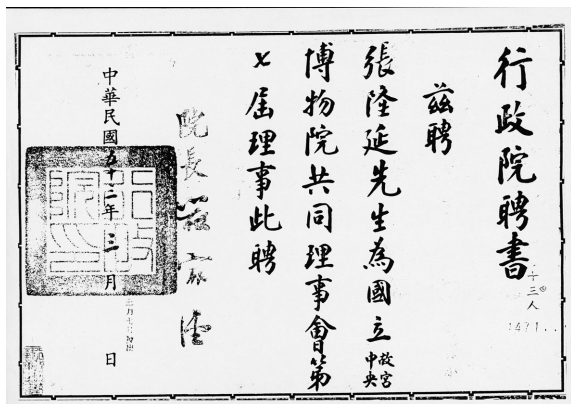 行政院聘書
十三人
茲聘
張隆延先生為國立故宮中央
博物院共同理事會第
七屆理事此聘
院長嚴家淦
中華民國五十 年三月 日
行政院印